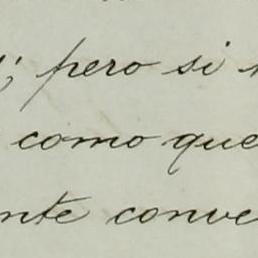 ; pero si
como que
nte conve